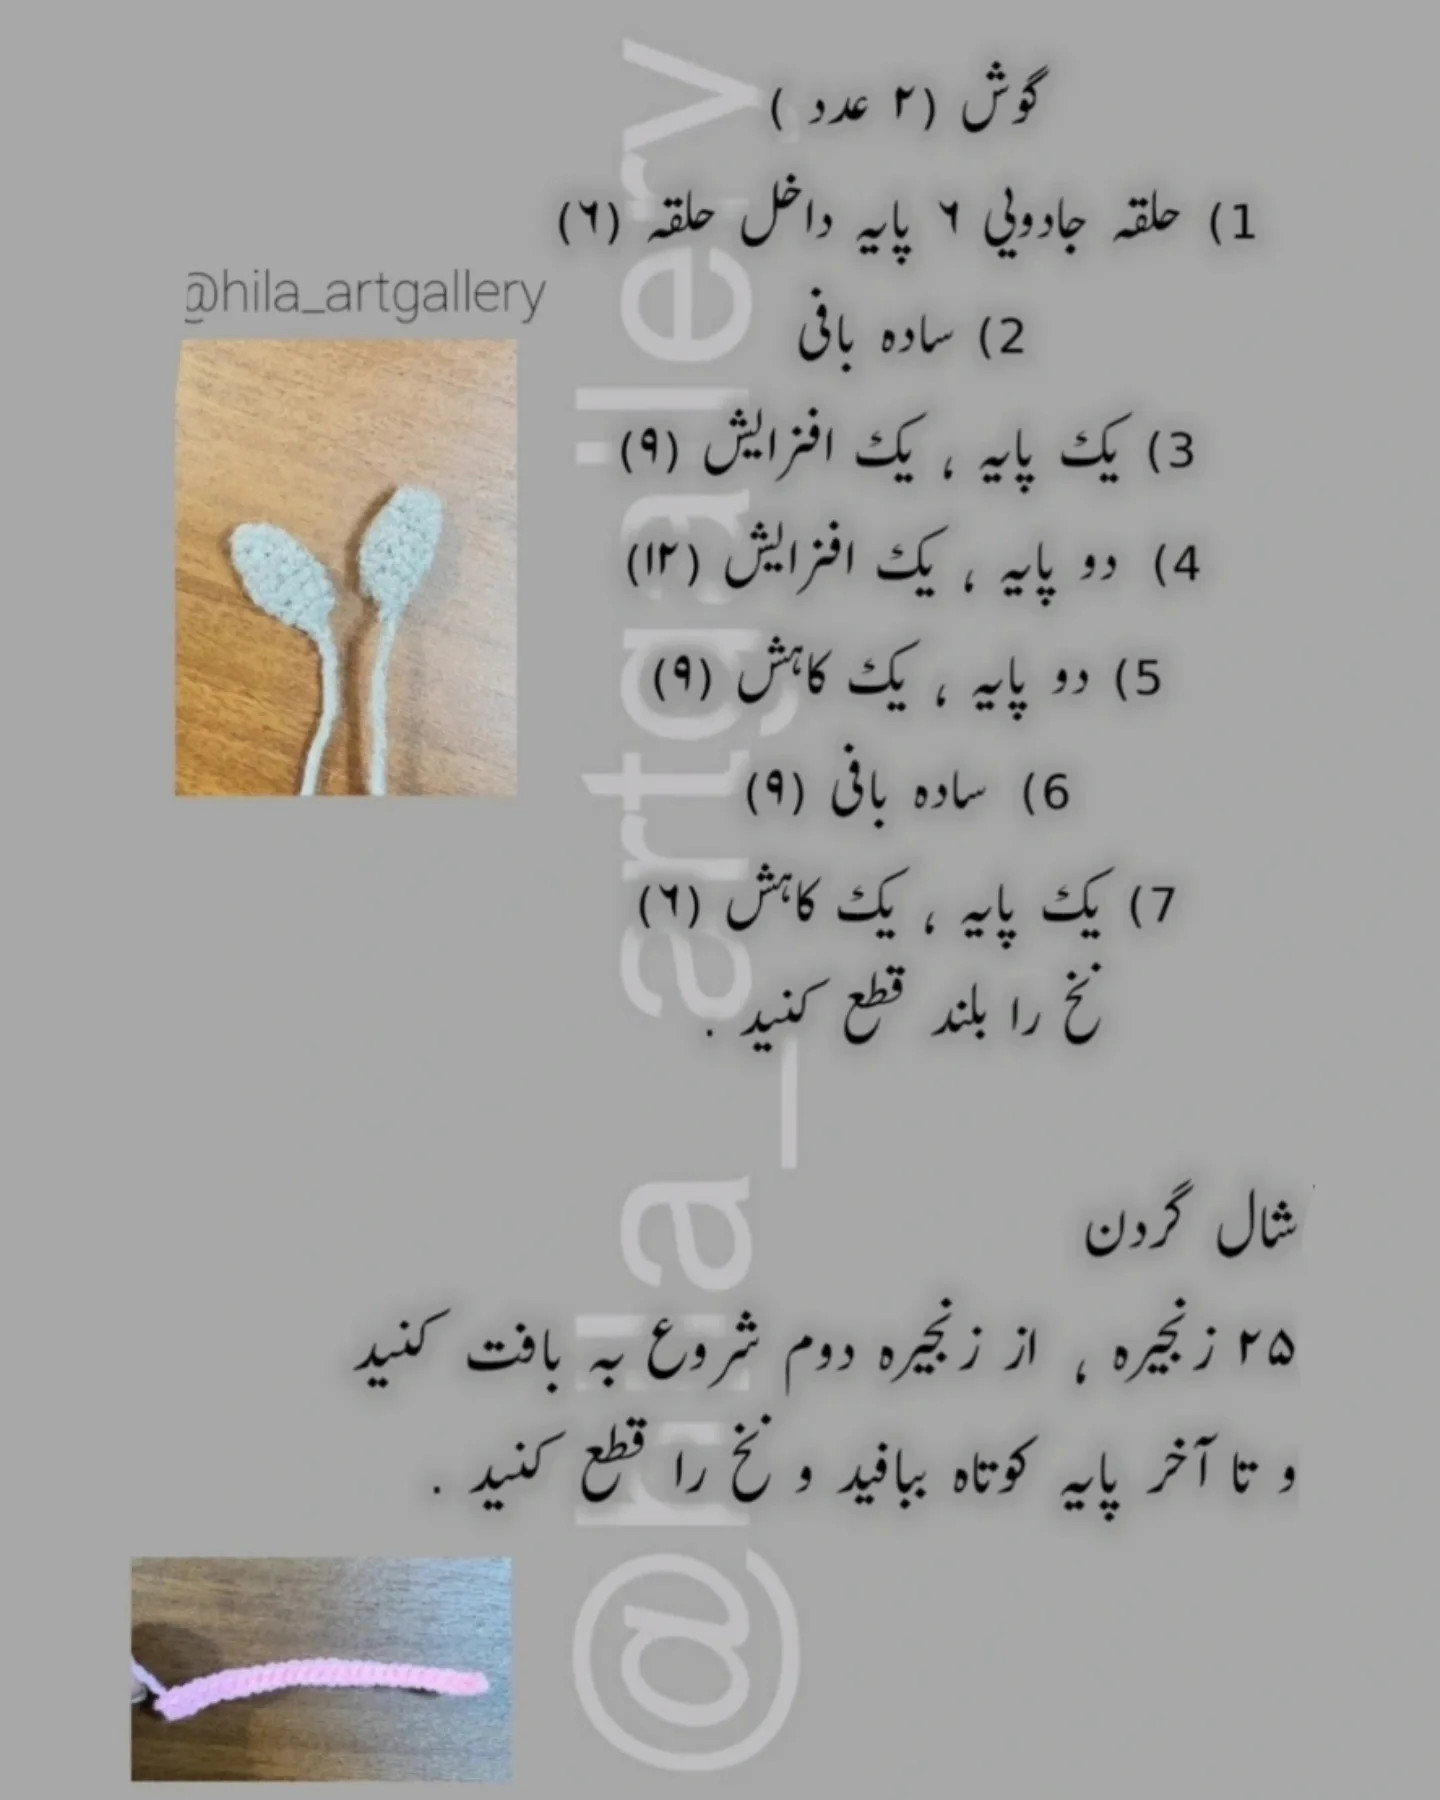 گوش (۲ عدد )
1) حلقه جادويي ٦ پایه داخل حلقه (٦)
@hila_artgallery
2) ساده بافی
3) یک پایه ، یک افزایش (۹)
4) دو پایه ، یک افزایش (۱۲)
5) دو پایه ، یک کاهش (۹)
6) ساده بافی (۹)
7) یک پایه ، یک کاهش (٦)
نخ را بلند قطع کنید .
شال گردن
۲۵ زنجیره ، از زنجیره دوم شروع به بافت کنید
و تا آخر پایه کوتاه ببافید و نخ را قطع کنید .
@hila_artgallery